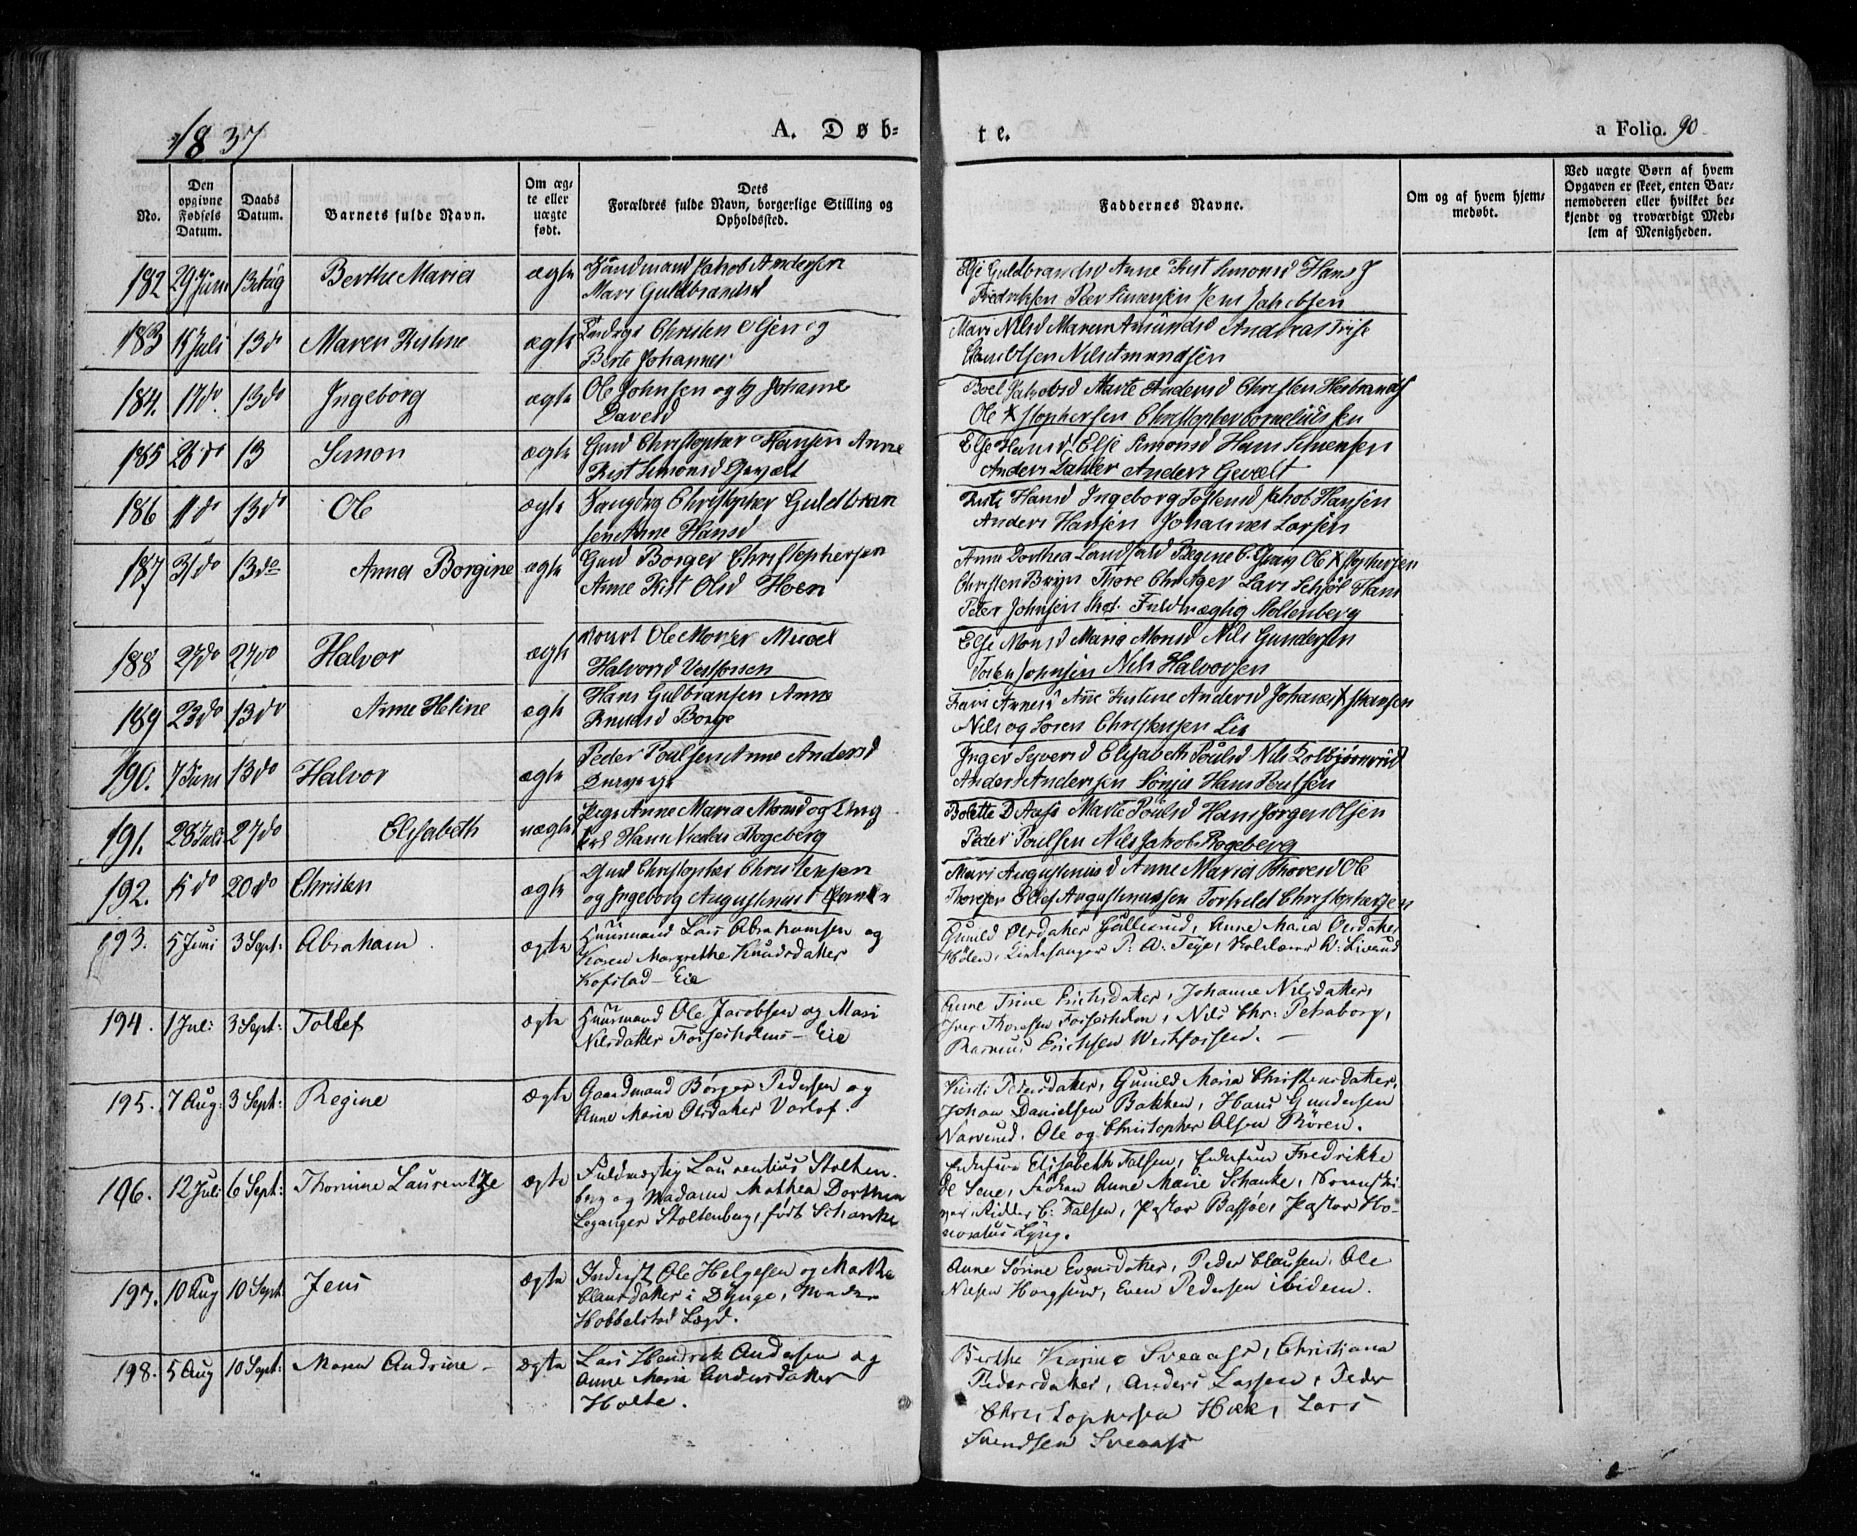 1837
A. Døb-
te.
a Folio. 90
No.
Den opgivne Fødsels Datum.
Daabs Datum.
Barnets fulde Navn.
Om ægte eller uægte født.
Dets
Forældres fulde Navn, borgerlige Stilling og Opholdssted.
Faddernes Navne.
Om og af hvem hjemmedøbt.
Ved uægte Børn af hvem Opgaven er skeet, enten Barnemoderen eller hvilket bekjendt og troværdigt Medlem af Menigheden.
182 29 Juni Berthe Maria ægte Jakob Andersen
Mari Guldbrandsd
Else Guldbrandsd Anne Kist Simonsd Hans J
Fredriksen Peer Simensen Jens Jakobsen
183 15 Juli 13 do Maren Kistine ægte Christen Olsen og
Berte Johannes
Mari Nilsd Maren Amundsd Andreas
Olsen Nils Amundsen
184. 17 do 13 do Ingeborg ægte Ole Johnsen og Johane
Davesd
Boel Jakobsd Marte Andersd Christen Herbrands
Ole Xstophersen Christopher Corneliussen
185 28 do 13 Simon ægte Gmd Christopher Hansen Anne
Kist Simonsd Gevælt
Else Hansd Else Simonsd Hans Simensen
Anders Dahler Anders Gevælt
186 11 do 13 do Ole ægte Christopher Guldbran
sen Anne Hansd
Hansd Ingeborg Toftensd Jakob Hansen
Anders Hansen Johannes Larsen
187 31 do 13 do Anna Borgine ægte Gmd Borger Christophersen
Anne Kist Olsd Hoen
Anna Dorthea Landfald Regine C. Ole Xstophersen
Christen Bryn Thore Chr Ager Lars Hans
Peter Johnsen Fuldmægtig Stoltenberg
188 27 do 27 do Halvor ægte Ole
Halvorsd Vestfossen
Else Monsd Maria Monsd Nils Gundersen
Johnsen Nils Halvorsen
189 23 do 13 do Anne Heline ægte Hans Gulbransen Anne
Knudsd Borge
Anne Kistine Andersd Johanes
Nils og Søren Christensen Lie
190. 7 Juni 13 do Halvor ægte Peder Poulsen Anne Andersd
Inger Syversd Elisabeth Poulsd Nils Kolbjørnrud
Anders Andersen Hans Poulsen
191. 28 Juli 27 do Elisabeth uægte Pige Anne Maria Monsd og Ung
krl Hans Nicolai Rogeberg
Bolette D Aass Marte Poulsd Hans Jørgen Olsen
Peder Poulsen Nils Jakob Rogeberg
192. 15 do 20 do Christen ægte Gmd Christopher Christensen
og Ingeborg Augustinusd
Mari Augustinusd Anne Maria Thoresd Ole
Thoresen Ellef Augustinussen Torkild Christophersen
193. 5 Juni 3 Sept: Abraham ægte Huusmand Lars Abrahamsen og
Karen Margrethe Knudsdatter
Kofstad-Eie
Gunild Olsdatter Gullesrud, Anne Maria Olsdatter
Kirkesanger P. A. Teje,
194. 1 Juli 3 Sept: Tollef ægte Huusmand Ole Jacobsen og Mari
Nilsdatter Fosserholms-Eie
Anne Trine Erichsdatter, Johanne Nilsdatter,
Iver Thoresen Fosserholm, Nils Chr: Petraborg,
Rasmus Erichsen Westfossen.
195. 7 Aug: 3 Sept: Regine Ægte Gaardmand Børger Pedersen og
Anne Maria Olsdatter Varlof.
Kirsti Pedersdatter, Gunild Maria Christensdatter,
Johan Danielsen Bakken, Hans Gundersen
Narverud, Ole og Christopher Olsen Røren.
196. 12 Juli 6 Sept: Thomine Laurentze ægte Fuldmægtig Laurentius Stolten-
berg og Madame Mathea Dorthea
Leganger Stoltenberg, født Schanke
Elisabeth Falsen, Fredrikke
de Seue, Frøken Anne Marie Schanke,
Ridder C. Falsen, Pastor Bassøe, Pastor Ho-
noratus Lyng.
197. 10 Aug 10 Sept. Jens ægte Inderst Ole Helgesen og Marthe
Clausdatter i Dynge,
Hobbelstad Lægd.
Anne Sørine Evensdatter, Peder Clausen, Ole
Nielsen Hougsund, Even Pedersen ibidem.
198. 5 Aug 10 Sept: Maren Andrine ægte Lars Hendrik Andersen og
Anne Maria Andersdatter
Holte.
Berthe Karine Sveaass, Christiana
Pedersdatter, Anders Larsen, Peder
Christophersen Hæk, Lars
Svendsen Sveaass